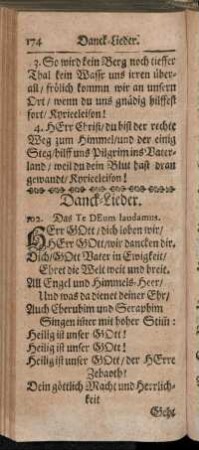 174 Danck-Lieder.
3. So wird kein Berg noch tieffer
Thal kein Wasser uns irren über-
all / frölich kommn wir an unsern
Ort / wenn du uns gnädig hilffest
fort / Kyrieleison!
4. HErr Christ / du bist der rechte
Weg zum Himmel / und der einig
Steg / hilff uns Pilgrim ins Vater-
land / weil du dein Blut hast dran
gewandt / Kyrieleison!
Danck-Lieder.
102. Das Te DEum laudamus.
HErr GOtt / dich loben wir /
HErr GOtt / wir dancken dir.
Dich / GOtt Vater in Ewigkeit /
Ehret die Welt weit und breit.
All Engel und Himmels-Heer /
Und was da dienet deiner Ehr /
Auch Cherubim und Seraphim
Singen im̃er mit hoher Stim̃:
Heilig ist unser GOtt!
Heilig ist unser GOtt!
Heilig ist unser GOtt / der HErre
Zebaoth!
Dein göttlich Macht und Herrlich-
keit
Geht